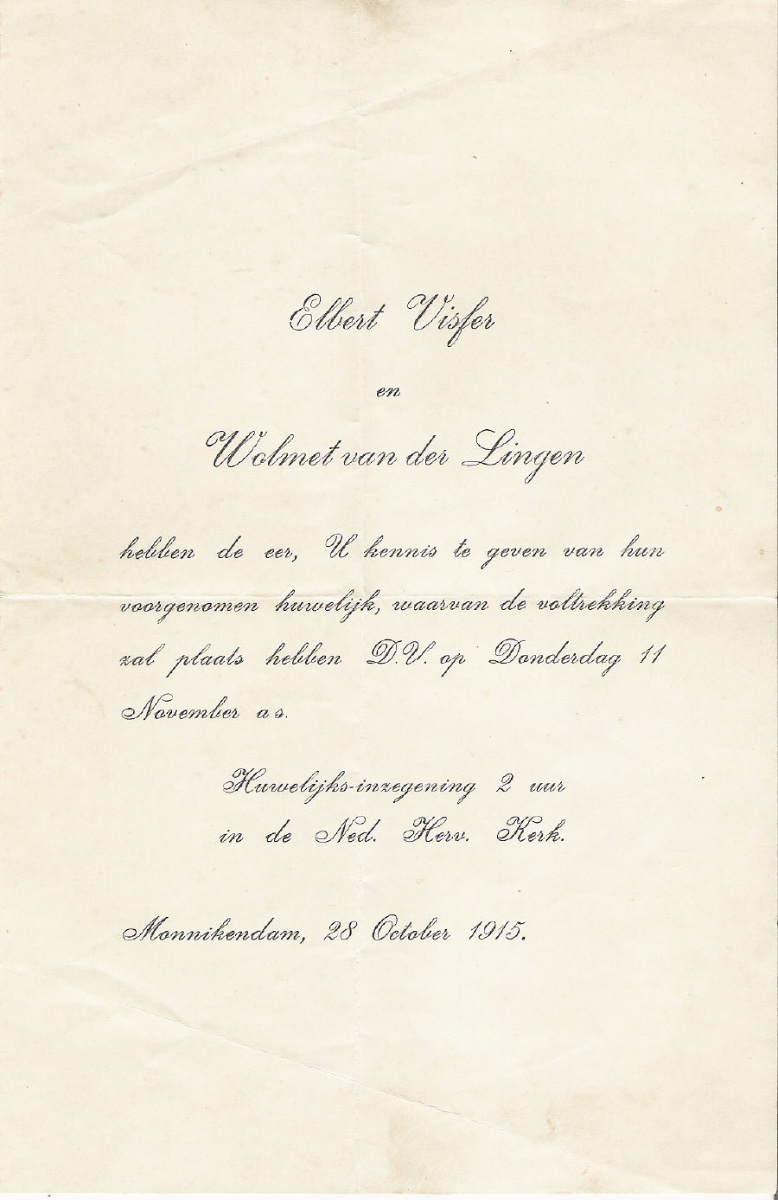 Elbert Visser
en
Wolmet van der Lingen
hebben de eer, U kennis te geven van hun
voorgenomen huwelijk, waarvan de voltrekking
zal plaats hebben D.V. op Donderdag 11
November a s.
Huwelijks-inzegening 2 uur
in de Ned. Herv. Kerk.
Monnikendam, 28 October 1915.